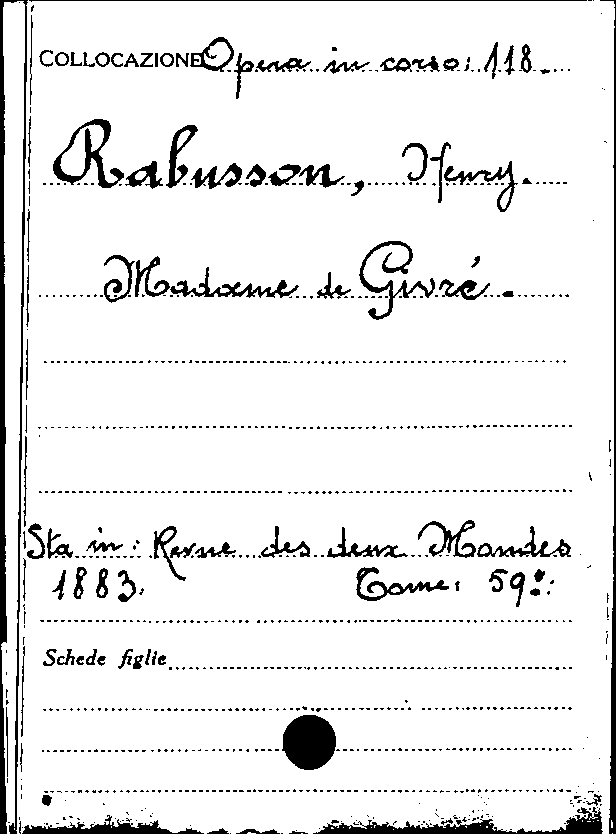 COLLOCAZIONE Opera in corso: 118.
Rabusson, Henry.
Madame de Givré.
Sta in: Revue des deux Mondes
1883. Tome: 59º:
Schede figlie